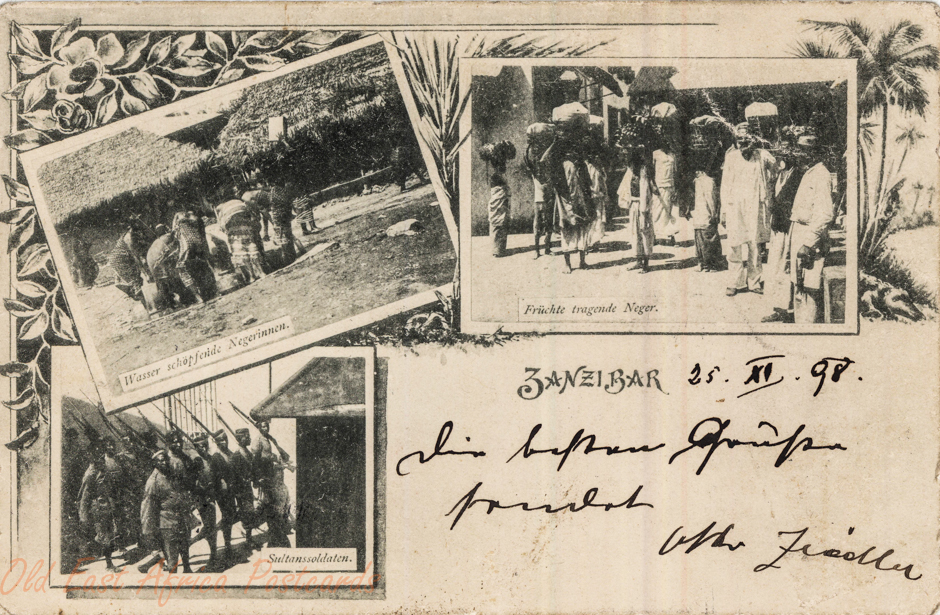 Wasser schöpfende Negerinnen.
Früchte tragende Neger.
ZANZIBAR 25. XI. 98.
Die besten Grüße
sendet
Otto Ziedler
Sultanssoldaten.
Old East Africa Postcards